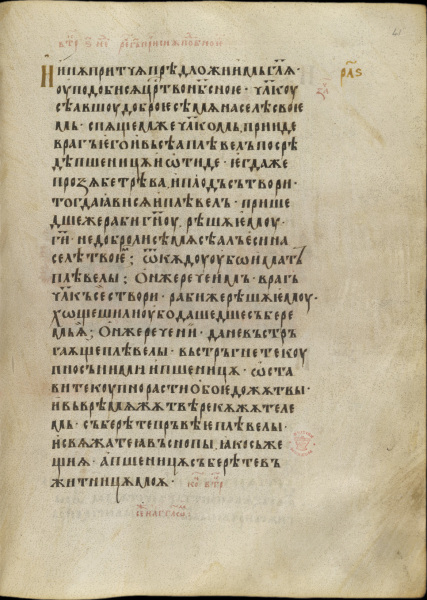 И нꙗ притуѧ прѣдложи имъ гл҃ѧ ·
оуподобисѧ цр҃тво нбс҃ное · чл҃коу
сѣавшоу доброе сѣмѧ на селѣ свое
мь · спѧщемже чл҃комь · прииде
врагъ его и всѣа плѣвелъ посрѣ
дѣ пшеницѧ и ѿтиде · егдаже
прозѧбе трѣва и плодъ сътвори ·
тогда ꙗвисѧ и плѣвелъ · прише
дшеже раби г҃ноу · рѣшѧ емоу ·
г҃и · не добро ли сѣмѧ сѣалъ еси на
селѣ твоем · ѿкѫдоу оубо имать
плѣвелы ; ѡнже рече имъ · врагъ
чл҃къ се створи · раби же рѣшѧ емоу ·
хощеши ли оубо да шедше събере
мь ѧ ; ѡнже рече ни · да не въстръ
гаѧще плѣвелы · въстръгнете коу
пно съ ними и пшеницѧ · ѡста
вите коупно расти обое до жѧтвы ·
и въ врѣмѧ жѧтвѣ рекѫ жѧтеле
мь · съберѣте пръвѣе плѣвелы ·
и свѧжѣте ѧ въ снопы · ꙗко съже
щи ѧ · а пшеницѫ съберѣте въ
житницѫ моѧ · кц҃ втр҃